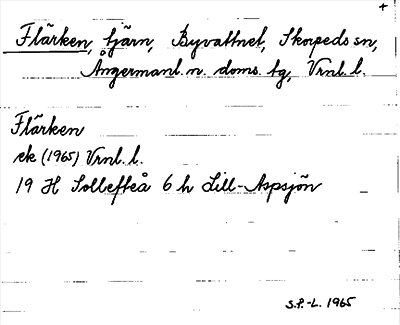 +
Flärken, tjärn, Byvattnet, Skorpeds sn,
Ångermanl. n. doms. tg, Vrnl. l.
Flärken
ek (1965) Vrnl. l.
19 H Sollefteå 6 h Lill-Aspsjön
S.P.-L. 1965